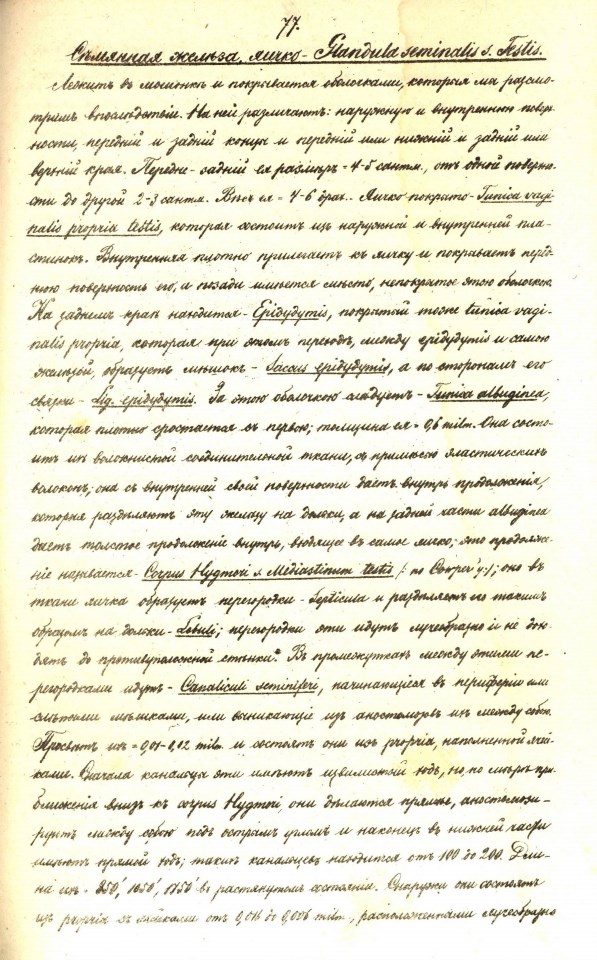 77.
Сѣмянная железа, яичко - Glandula seminalis s. Testis.
Лежитъ въ мошонкѣ и покрывается оболочками, которыя мы разсмо-
тримъ впослѣдствіи. На ней различаютъ: наружную и внутреннюю поверх-
ности, передній и задній концы и передній или нижній и задній или
верхній края. Передне-задній ея размѣръ = 4-5 сантм., отъ одной поверхно-
сти до другой 2-3 сантм. Вѣсъ ея = 4-6 драх.. Яичко покрыто - Tunica vagi-
nalis propria testis, которая состоитъ изъ наружной и внутренней пла-
стинокъ. Внутренняя плотно прилегаетъ къ яичку и покрываетъ перед-
нюю поверхность его, а позади имѣется мѣсто, непокрытое этою оболочкою.
На заднемъ краѣ находится - Epidydymis, покрытый тоже tunica vagi-
nalis propria, которая при этомъ переходѣ, между epidydymis и самою
железой, образуетъ мѣшокъ - Saccus epidydymis, а по сторонамъ его
связки - Lig. epidydymis. За этою оболочкою слѣдуетъ - Tunica albuginea,
которая плотно сростается съ первою; толщина ея = 0,6 milm. Она состо-
итъ изъ волокнистой соединительной ткани, съ примѣсью эластическихъ
волоконъ; она съ внутренней своей поверхности даетъ внутрь продолженія,
которыя раздѣляютъ эту железу на дольки, а на задней части albuginea
даетъ толстое продолженіе внутрь, входящее въ самое яичко; это продолже-
ніе называется - Corpus Hygmori s. Mediastinum testis /: по Cooper'у :/; оно въ
ткани яичка образуетъ перегородки - Septicula и раздѣляетъ его такимъ
образомъ на дольки - Lobuli; перегородки эти идутъ лучеобразно и не дохо-
дятъ до противуположной стѣнки. Въ промежуткахъ между этими пе-
регородками идутъ - Canaliculi seminiferi, начинающіеся въ периферіи или
слѣпыми мѣшками, или возникающіе изъ анастомозовъ ихъ между собою.
Просвѣтъ ихъ = 0,01 - 0,12 milm. и состоятъ они изъ propria, наполненной ячей-
ками. Сначала канальцы эти имѣютъ извилистый ходъ, но, по мѣрѣ при-
ближенія внизъ къ corpus Hygmori, они дѣлаются прямѣе, анастомози-
руютъ между собою подъ острымъ угломъ и наконецъ въ нижней части
имѣютъ прямой ходъ; такихъ канальцевъ находится отъ 100 до 200. Дли-
на ихъ - 850', 1050', 1750' въ растянутомъ состояніи. Снаружи они состоятъ
изъ propria съ ячейками отъ до milm., расположенными лучеобразно